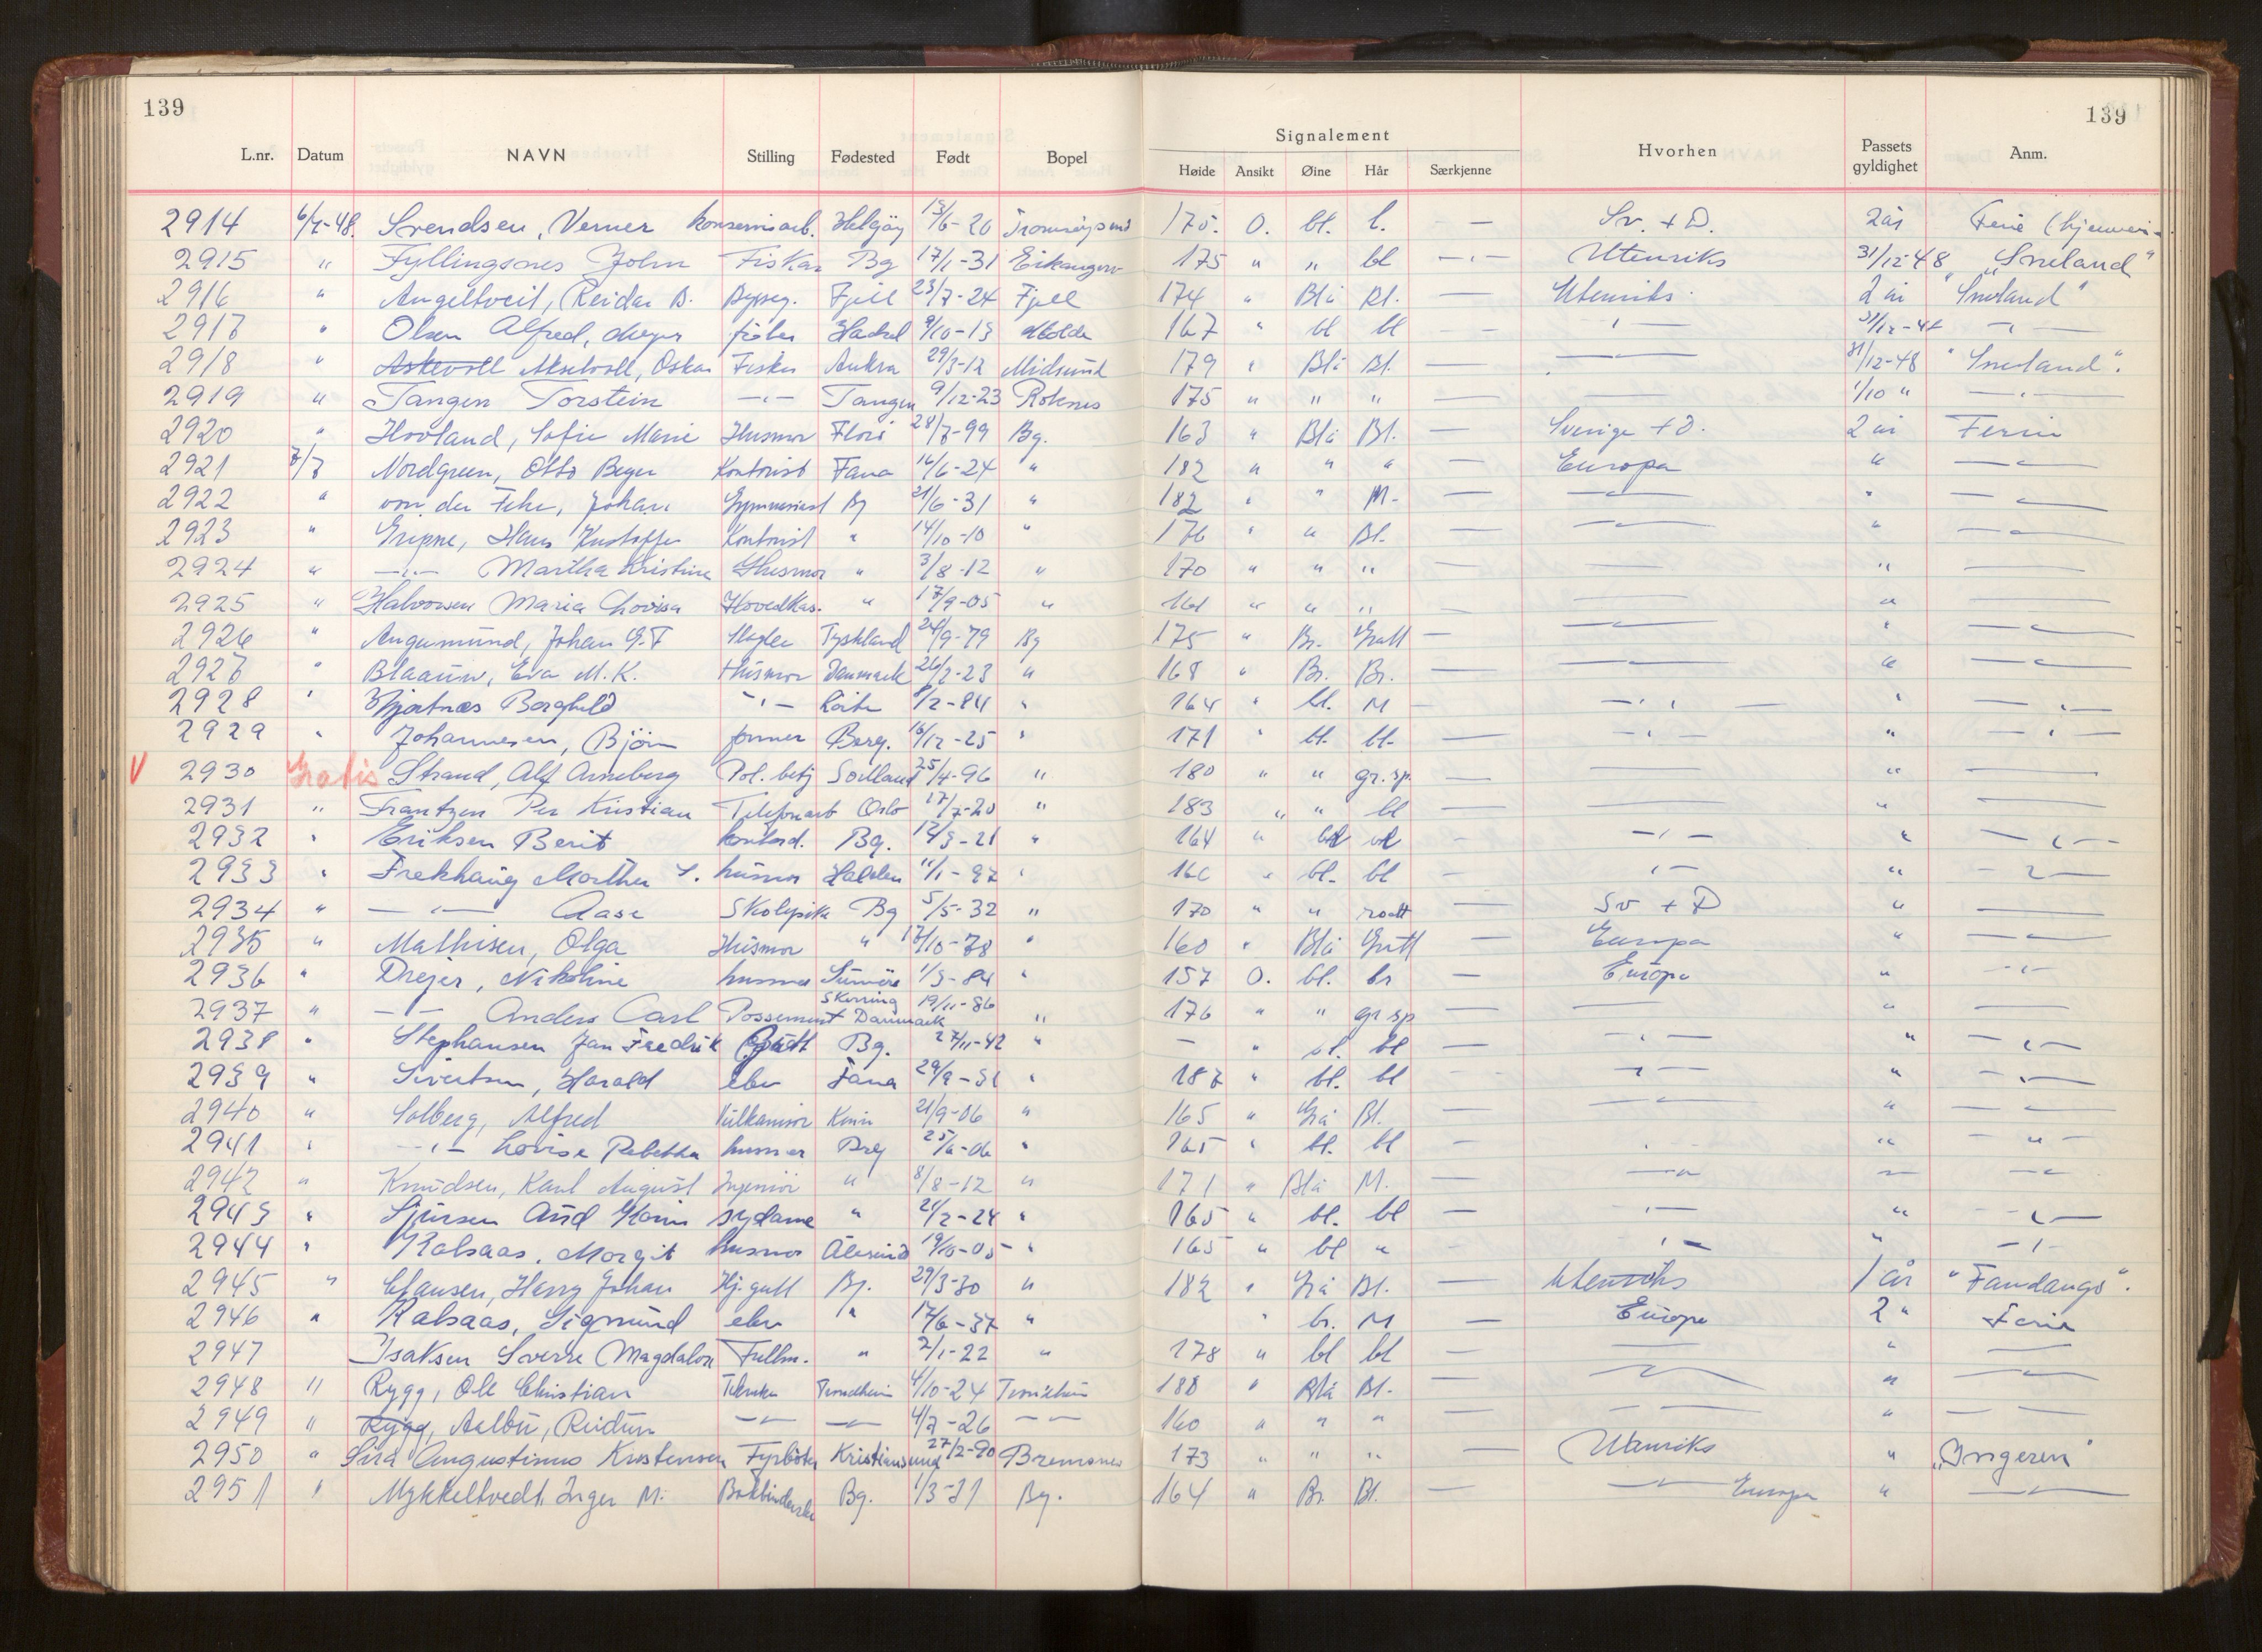 139
139
L.nr. Datum NAVN Stilling Fødested Født Bopel Signalement Hvorhen Passets gyldighet Anm.
Høide Ansikt Øine Hår Særkjenne
2914 6/7-48. Svendsen, Verner konserviarb. Helgöy 13/6-20 Tromsöysund 175. O. bl. l. — Sv. + D. 2 år Ferie
2915 " Fyllingsnes John Fisker Bg 17/1-31 Eikanger 175 " " bl —"— Utenriks 31/12-48 "Sneland"
2916 " Angeltveit, Reidar B. Fjell 23/7-24 Fjell 174 " Blå Bl. — Utenriks 2 år "Sneland"
2917 " Olsen Alfred, Meyer Hadsel 9/10-13 Molde 167 " bl bl — —"— 31/12-48 —"—
2918 " Askevoll Akselvoll, Oskar Fisker Aukra 29/3-12 Midsund 179 " Blå Bl. — —"— 31/12-48 "Sneland".
2919 " Tangen Torstein —"— Tangen 9/12-23 Roknes 175 " " " — — 1/10 " —"—
2920 " Hovland, Sofie Marie Husmor Florö 28/7-99 Bg. 163 " Blå Bl. — Sverige + D. 2 år Ferie
2921 7/7 Nordgreen, Otto Beyer Kontorist Fana 16/6-24 " 182 " " " — Europa " —"—
2922 " von der Fehr, Johan Gymnasiast Bg 21/6-31 " 182 " " M. — —"— " —"—
2923 " Gripne, Hans Kristoffer Kontorist " 14/10-10 " 176 " " Bl. — —"— " —"—
2924 " —"— Martha Kristine Husmor " 3/8-12 " 170 " " " — — " —
2925 " Halvorsen Maria Lovisa Hovedkas. " 17/9-05 " 161 " " " — — " —
2926 " Angermund, Johan G.F Tyskland 24/9-79 Bg 175 " Br. Grått — —"— " —"—
2927 " Blaauw, Eva M. K. Husmor Danmark 26/2-23 " 168 " Br. Br. — —"— " —"—
2928 " Hjortnæs Borghild —"— 8/2-84 " 164 " bl. M — —"— " —"—
2929 " Johannesen, Björn former Berg. 16/12-25 " 171 " bl. bl. — —"— " —"—
V 2930 Gratis Strand, Alf Arneberg Pol. betj 25/4-96 " 180 " " gr.sp. — — " —
2931 " Frantzen Per Kristian Telefonarb Oslo 17/7-20 " 183 " " bl — — " —
2932 " Eriksen Berit kontord. Bg. 12/3-21 " 164 " bl bl — —"— " —"—
2933 " Frekhaug Martha S. husmor Halden 11/1-97 " 160 " bl. bl — "— " —"—
2934 " —"— Aase Skolepike Bg 5/5-32 " 170 " " rødt — Sv + D " —
2935 " Mathisen, Olga Husmor " 17/10-78 " 160 " Blå Grått — Europa " —"—
2936 " Drejer, Nikoline husmor 1/3-84 " 157 O. bl. br — Europa " —"—
2937 " —"— Anders Carl Possement Skorring Danmark 19/11-86 " 176 " " gr sp — — " —
2938 " Stephansen Jan Fredrik Gutt Bg. 27/11-42 " — " bl. bl — —"— " —"—
2939 " Sivertsen, Harald elev Fana 29/9-31 " 187 " bl. bl — —"— " —"—
2940 " Solberg, Alfred Vulkanisør Kinn 21/9-06 " 165 " Grå Bl. — —"— " —"—
2941 " —"— Lovise Rebekka husmor Brg 25/6-06 " 165 " bl. bl — —"— " —"—
2942 " Knudsen, Karl August Ingeniör " 8/8-12 " 171 " Blå M. — —"— " —"—
2943 " Sjursen Aud Karin sydame " 21/2-24 " 165 " bl. bl — "— " —"—
2944 " Kalsaas, Margit husmor Ålesund 19/10-05 " 165 " bl " — "— " —"—
2945 " Clausen, Harry Johan Hj.gutt Bg. 29/3-30 " 182 " Grå Bl. — Utenriks 1 år "Fandango".
2946 " Kalsaas, Sigmund elev " 17/6-37 " " br. M — Europa 2 " Ferie
2947 Isaksen Sverre Magdalon Fullm. " 7/1-22 " 178 " bl bl — — " —
2948 " Rygg, Ole Christian Tekniker Trondheim 4/10-24 Trondheim 188 " Blå Bl. — —"— " —"—
2949 " Rygg, Aalbu, Reidun —"— —"— 4/7-26 —"— 160 " " " — — " —"—
2950 " Sira Augustinus Kristensen Fyrböter Kristiansund 27/2-90 Bremsnes 173 " " " — Utenriks " "Ingeren"
2951 " Mykkeltvedt, Inger M. Bokbinderske Bg. 1/3-21 Bg. 164 " Br. Bl. — —"— Europa " —"—